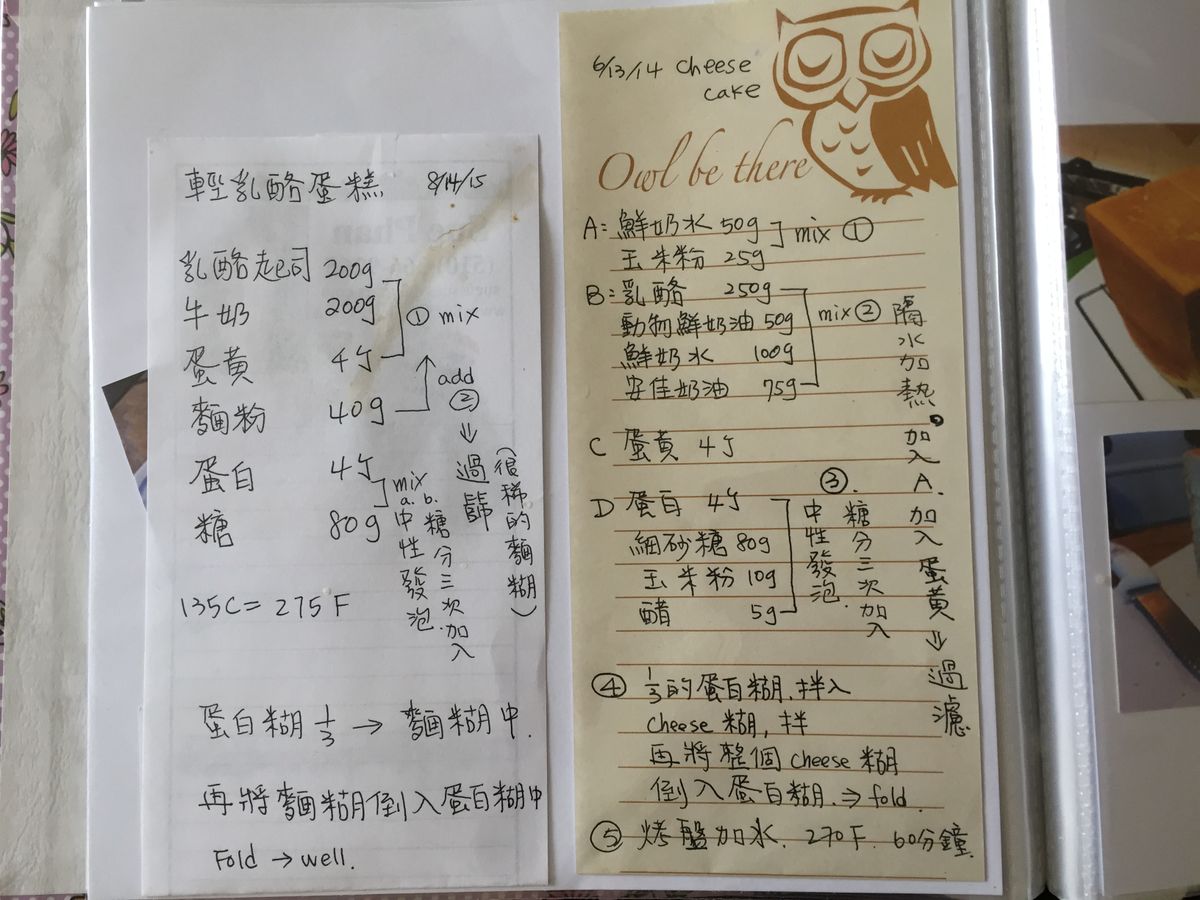 輕乳酪蛋糕 8/14/15
乳酪起司 200g
牛奶 200g
① mix
蛋黃 4个
麵粉 40g
add
②
⇓
過篩
(很稀的麵糊)
蛋白 4个
糖 80g
mix
a. 中性發泡.
b. 糖分三次加入
135C = 275F
蛋白糊 1/3 → 麵糊中.
再將麵糊倒入蛋白糊中
Fold → well.
6/13/14 cheese
cake
Owl be there
A: 鮮奶水 50g
玉米粉 25g
mix ①
B: 乳酪 250g
動物鮮奶油 50g
鮮奶水 100g
安佳奶油 75g
mix ②
隔水加熱。加入A.加入蛋黃⇒過濾
C 蛋黃 4个
D 蛋白 4个
細砂糖 80g
玉米粉 10g
醋 5g
③.
中性發泡.
糖分三次加入
④ 1/3的蛋白糊.拌入
cheese 糊, 拌
再將整個cheese 糊
倒入蛋白糊. ⇒ fold.
⑤ 烤盤加水. 270F. 60分鐘.